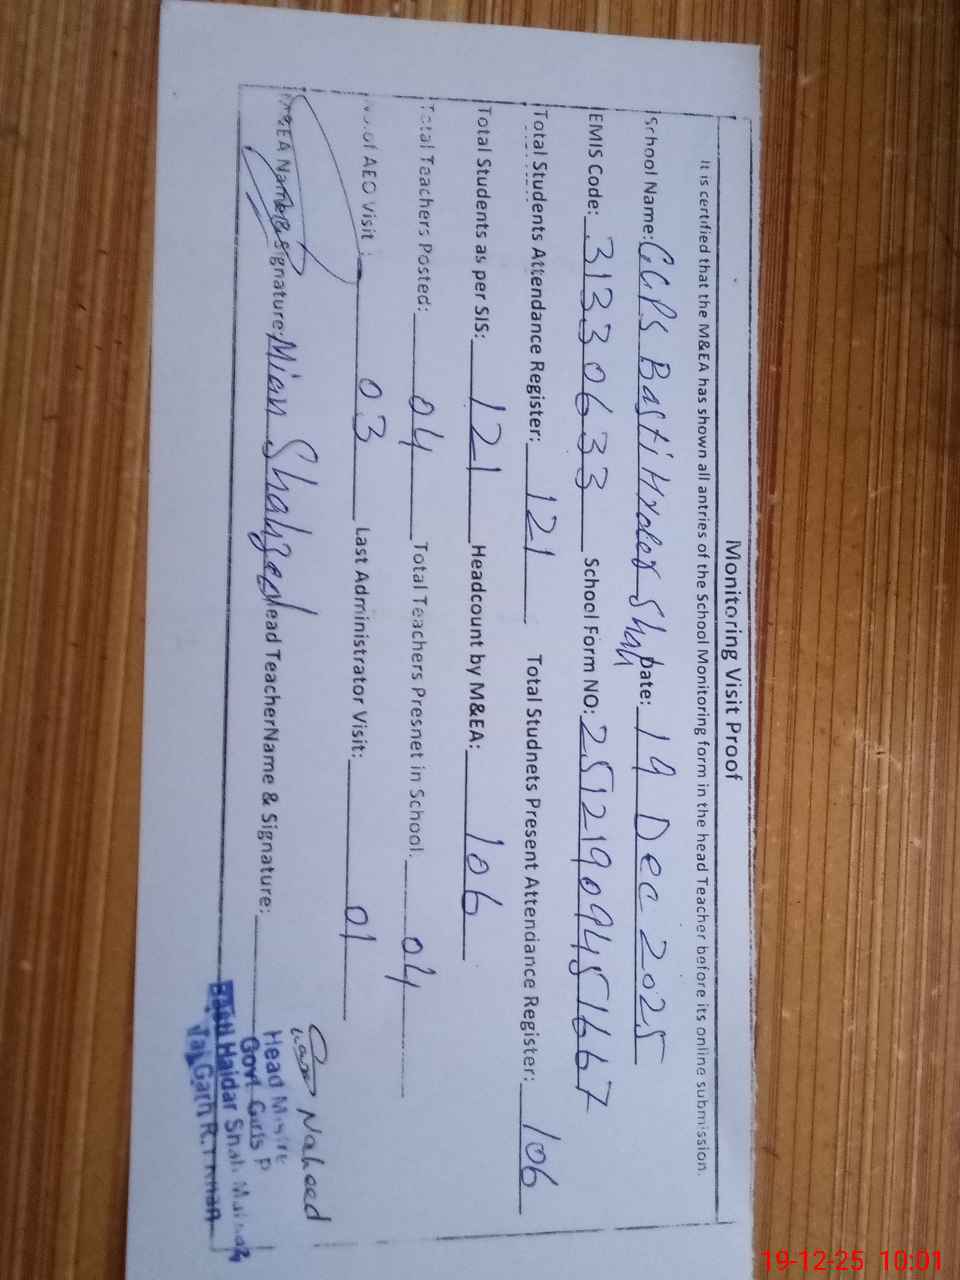 Monitoring Visit Proof
It is certified that the M&EA has shown all antries of the School Monitoring form in the head Teacher before its online submission.
School Name: GGPS Basti Hyder Shah Date: 19 Dec 2025
EMIS Code: 31330633 School Form NO: 25121909451667
Total Students Attendance Register: 121 Total Studnets Present Attendance Register: 106
Total Students as per SIS: 121 Headcount by M&EA: 106
Total Teachers Posted: 04 Total Teachers Presnet in School: 04
No.of AEO Visit: 03 Last Administrator Visit: 01
M&EA Name & Signature: Mian Shahzad Head TeacherName & Signature:
Naheed
Head Mistre
Govt Girls P
Basti Haidar Shah
Taj Garh R.Y.Khan
19-12-25 10:01